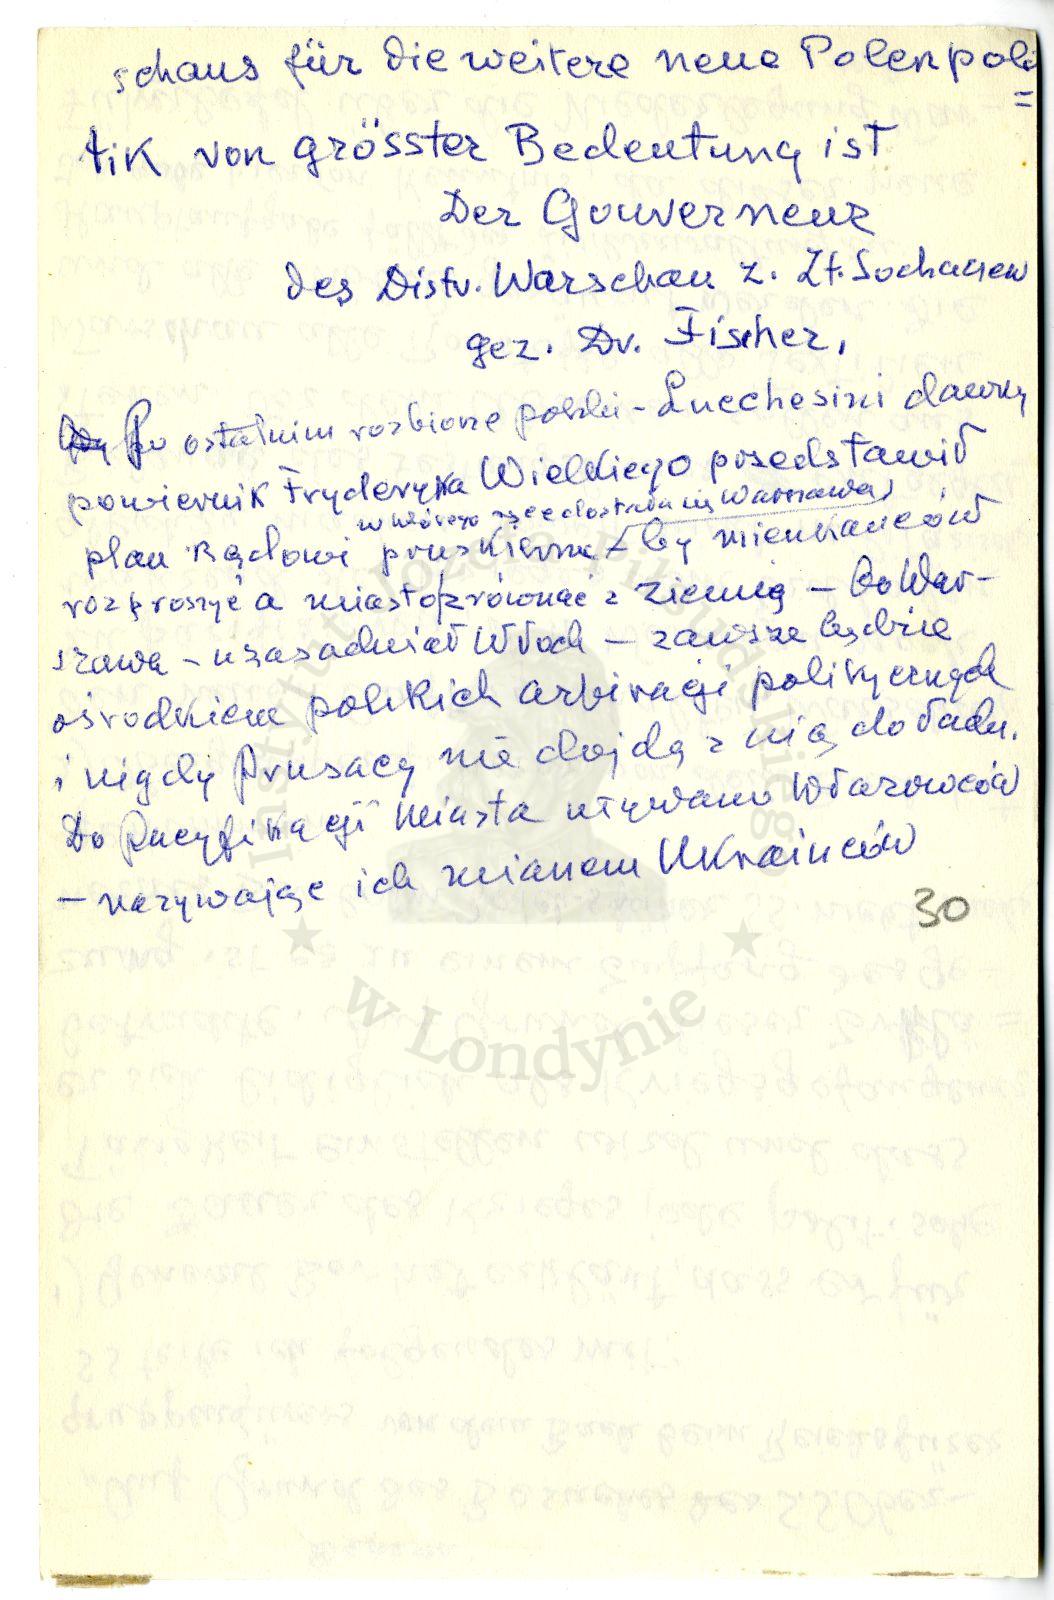 schaus für die weitere neue Polenpoli=
tik von grösster Bedeutung ist
Der Gouverneur
des Distr. Warschau z. Zt. Sochaczew
gez. Dr. Fischer.
Po ostatnim rozbiorze polski - Lucchesini dawny
powiernik Fryderyka Wielkiego przedstawił
w którego ręce dostała się Warszawa
plan rządowi pruskiemu by mieszkańców
rozproszyć a miasto zrównać z ziemią - bo War-
szawa - uzasadniał Włoch - zawsze będzie
ośrodkiem polskich politycznych
i nigdy Prusacy nie dojdą z nią do ładu.
Do Pacyfikacji miasta używano Własowców
- nazywając ich mianem Ukraińców
30
Instytut Józefa Piłsudskiego
w Londynie